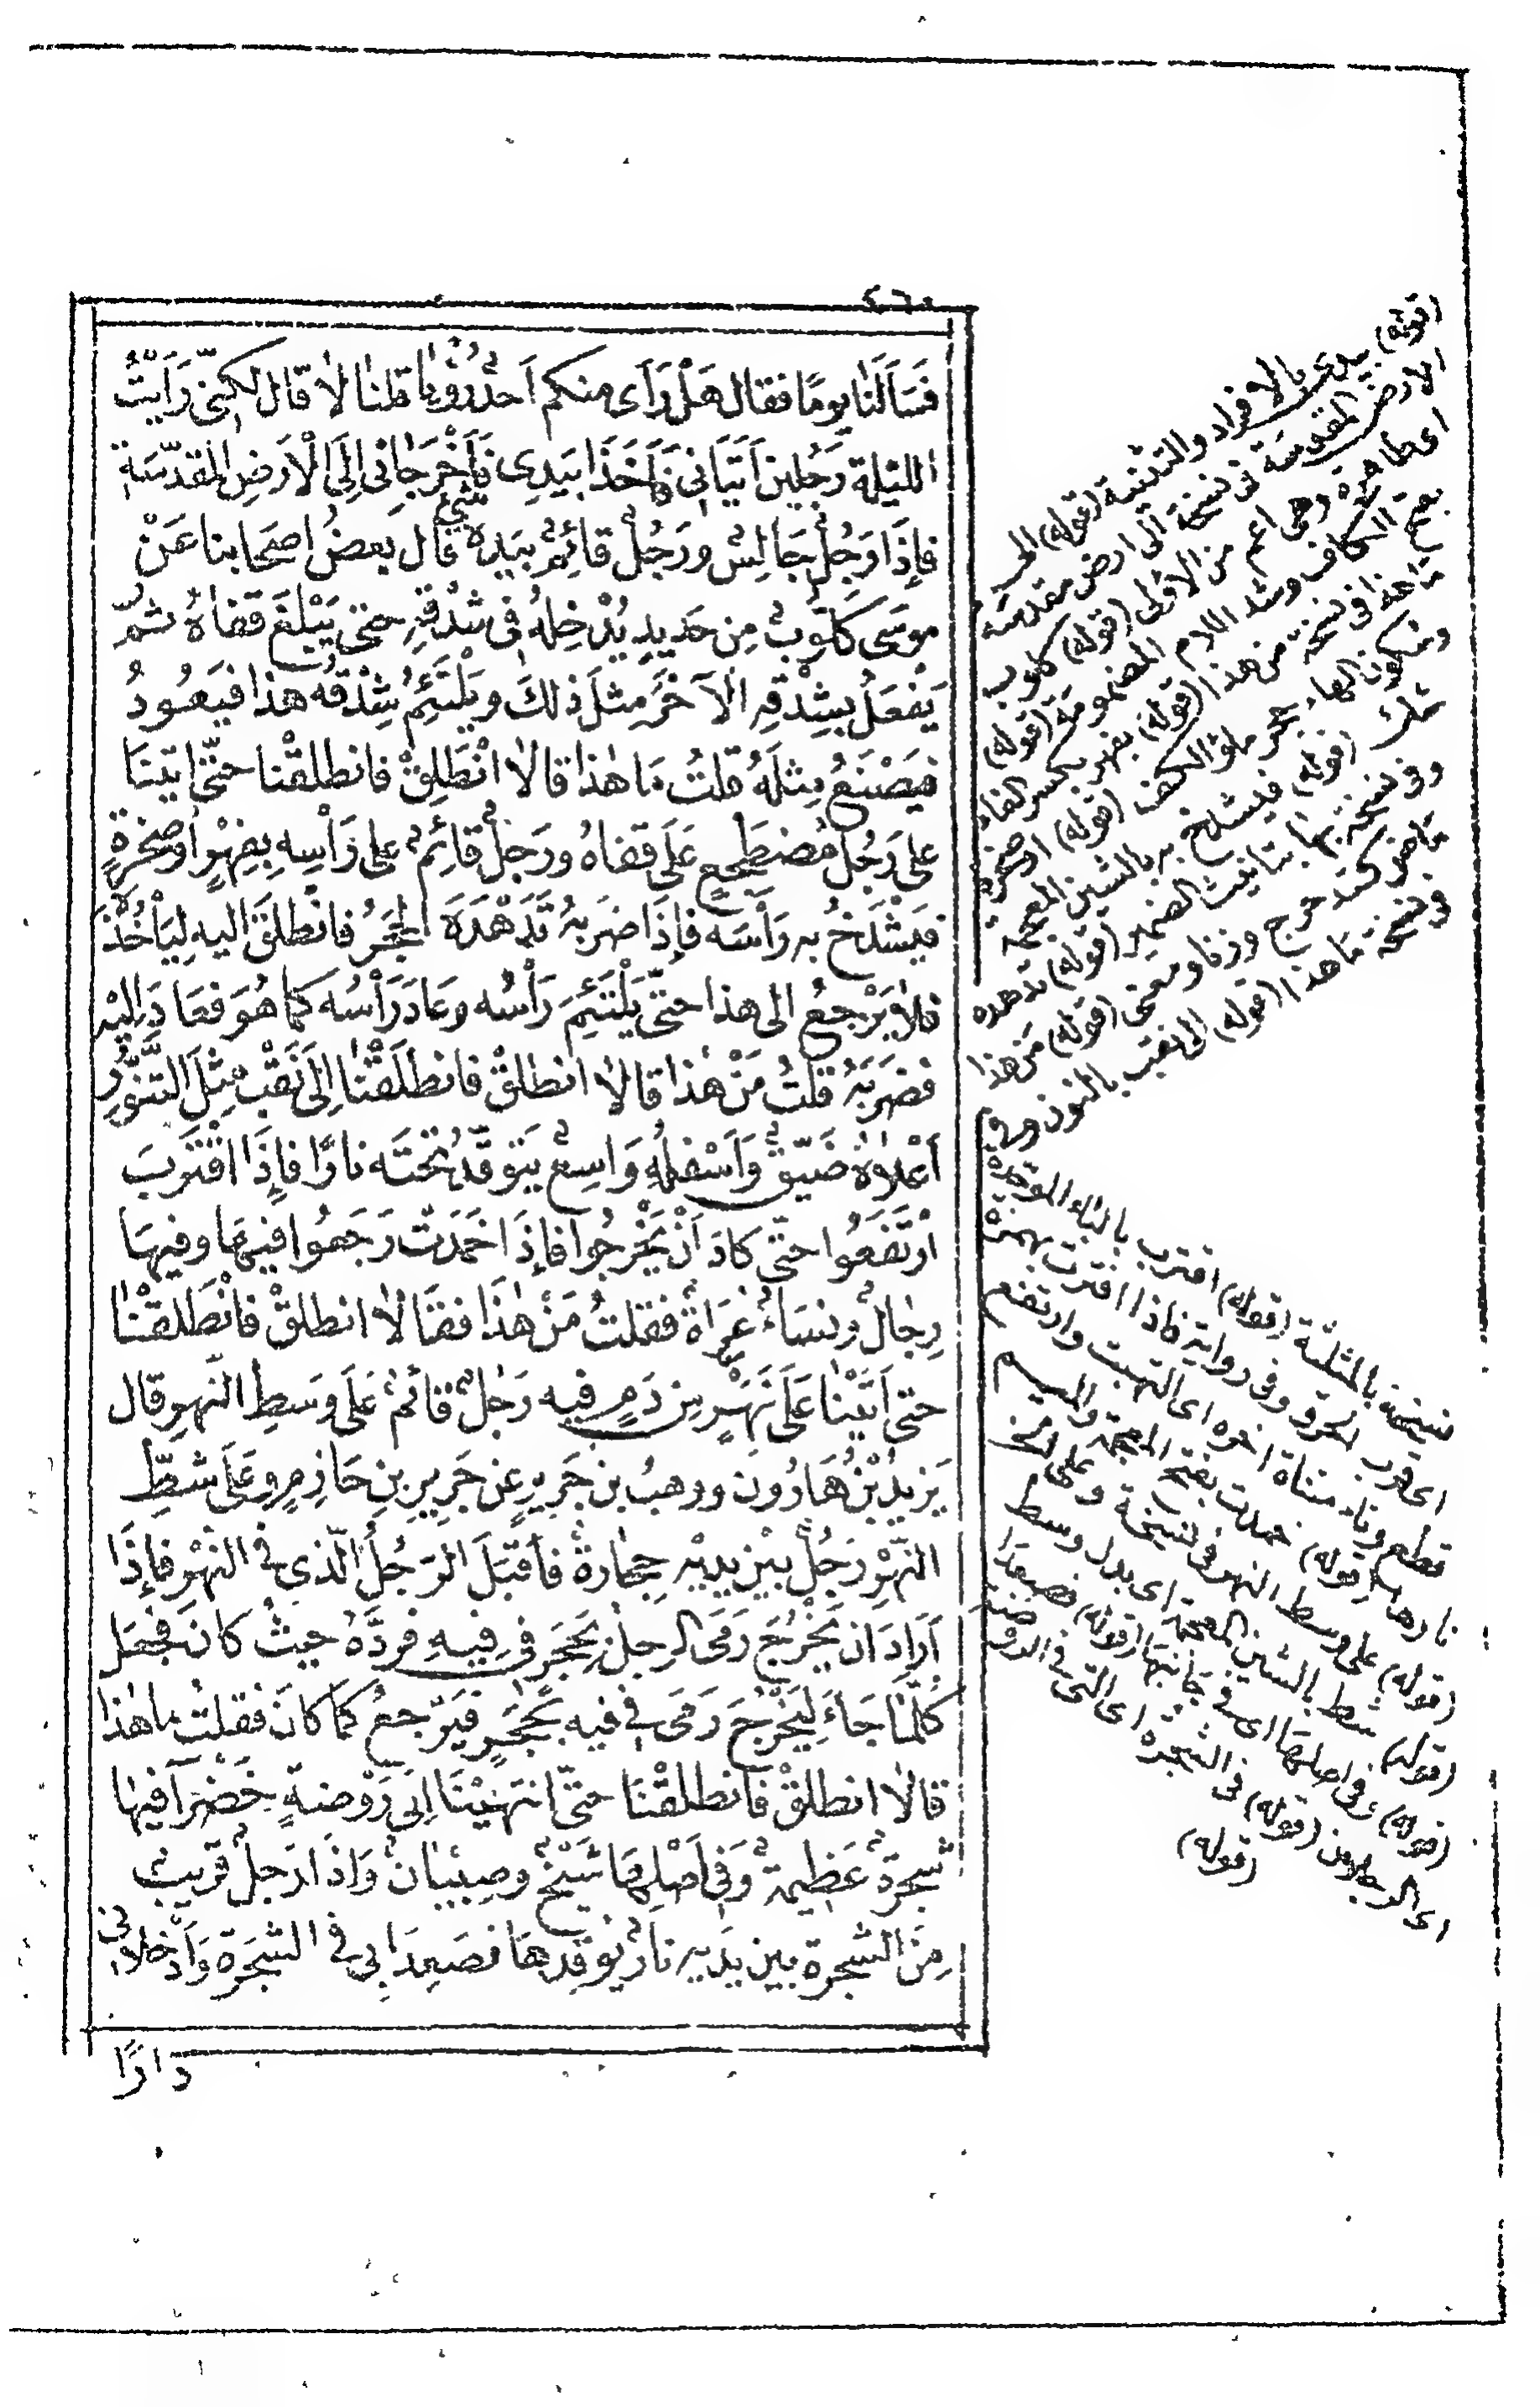 ٤٦٠
فَسَأَلَنَا يومًا فقال هَلْ رَأَى منكم أَحَدٌ رُؤْيَا قلنا لا قال لكنّى رَأَيْتُ
الليْلَة رَجُلين أَتَيَانِى فَأَخَذَا بِيَدِى فَأَخْرَجَانِى إِلَى الْأَرضِ المقدّسَةِ
فإِذَا رَجُلٌ جَالِسٌ ورَجُلٌ قائِمٌ بيَدِه شئ قال بعضُ اصحَابنا عَنْ
موسَى كَلُّوبٌ مِن حَديدٍ يُدْخِلُهُ فى شِدْقِهِ حتى يَبْلغَ قفَاهُ ثمّ
يَفْعَلُ بشِدْقِهِ الآخَرِ مثلَ ذلكَ ويَلْتَئِمُ شِدْقُه هذا فيَعُودُ
فيَصْنَعُ مِثلَهُ قلتُ مَا هٰذا قالا انْطَلِقْ فانطلقْنا حتّى اتَيْنَا
على رَجُلٍ مُضطَجِعٍ عَلَى قفاهُ ورَجُلٌ قائِمٌ على رَأْسِهِ بِفِهْرٍ أوصَخْرَةٍ
فيَشْدَخُ به رَأْسَه فإِذَا ضرَبهُ تَدَهْدَهَ الحَجَرُ فانْطلَقَ اليهِ ليَأْخُذَهُ
فلا يَرْجعُ الى هذا حتّى يَلْتَئِمَ رَأْسُه وعَادَ رَأْسُه كما هُوَ فعَادَ إِليْهِ
فضَرَبَهُ قلتُ مَنْ هٰذا قالا انطلقْ فانطَلَقْنَا إِلَى نَقْبٍ مثِلَ التَّنُّورِ
أَعْلاهُ ضَيّقٌ وَأَسْفلُهُ وَاسِعٌ يَتَوقَّدُ تحْتَه نارًا فإِذَا اقْتَرَبَ
ارْتَفَعُوا حتّى كادَ أَنْ يَخْرُجوا فإِذَا خَمَدَتْ رَجَعُوا فيهَا وفيهَا
رِجالٌ ونسَاءٌ عُرَاةٌ فقلتُ مَنْ هٰذَا فقَالا انطلقْ فانْطَلقْنَا
حتى أَتَيْنَا عَلَى نَهَرٍ مِن دَمٍ فيه رَجُلٌ قائمٌ عَلَى وَسَطِ النّهرِ قال
يَزيدُ بْنُ هَارُونَ ووهبُ بن جَرِيرٍ عن جَرِيرِ بنِ حَازِمٍ وعَلَى شطِّ
النّهَرِ رَجُلٌ بيْن يديْه حِجَارةٌ فأقبَلَ الرّجُلُ الّذى فى النهْرِ فإِذَا
أَرادَ ان يَخْرُجَ رَمَى الرجلُ بحَجَرٍ فى فِيهِ فرَدَّهُ حيثُ كانَ فجعَل
كُلّمَا جَاءَ لِيَخْرُجَ رَمَى فى فيه بحَجَرٍ فيَرْجعُ كمَا كانَ فقلتُ ما هٰذا
قالا انطلقْ فانطلقْنَا حتّى انتهَيْنَا إلى رَوْضةٍ خَضْرَآ فيهَا
شجرَةٌ عَظِيمةٌ وَفى أَصْلِهَا شَيْخٌ وصِبْيَانٌ وَاذَا رَجلٌ قريبٌ
مِنَ الشجرةِ بين يدَيه نارٌ يُوقدهَا فصَعِدَا بى فى الشّجَرَة وَأَدْخَلانى
دارًا
(قوله) بيدى بالافراد والتثنية (قوله) الى
الارض المقدسة فى نسخة الى ارض مقدسة
وهى اعم من الاولى (قوله) كلوب
الكاف وشد اللام المضمومة (قوله)
فى نسخة من هذا (قوله) بفهر بكسر الفاء
وسكون الهاء حجر ملؤ الكف (قوله) اوصخرة
(قوله) فيشدخ به بالشين المعجمة
وفى نسخة بها بتانيث الضمير (قوله) تدهده
ومعنى (قوله) من هذا
وفى نسخة ما هذا (قوله) الى نقب بالنون وفى
نسخة بالمثلثة (قوله) اقترب بالباء الموحدة
وفى رواية فاذا اقترت بهمزة
قطع مثناة اخره اى التهبت وارتفع
نارها (قوله) خمدت بفتح المعجمة والميم
(قوله) على وسط النهر فى نسخة وعلى
(قوله) شط بالشين المعجمة اى بدل وسط
(قوله) وفى اصلها اى فى جانبها (قوله) فصعدا
اى الرجلان (قوله) فى الشجرة اى التى فى الروضة
(قوله)